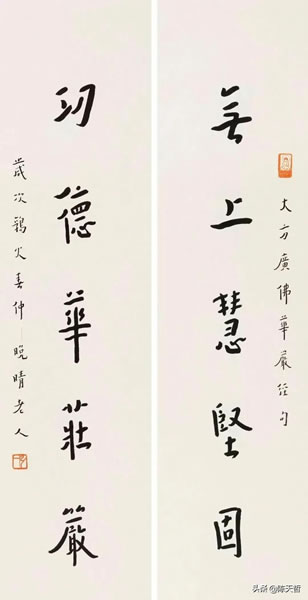 大方廣佛華嚴經句
無上慧堅固
功德華莊嚴
歲次鶉火春仲 晚晴老人
头条@陈天哲